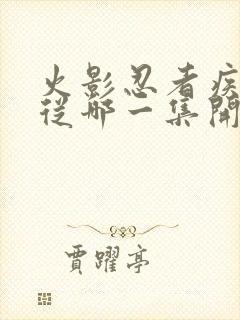 火影忍者疾
從哪一集開
賈躍亭